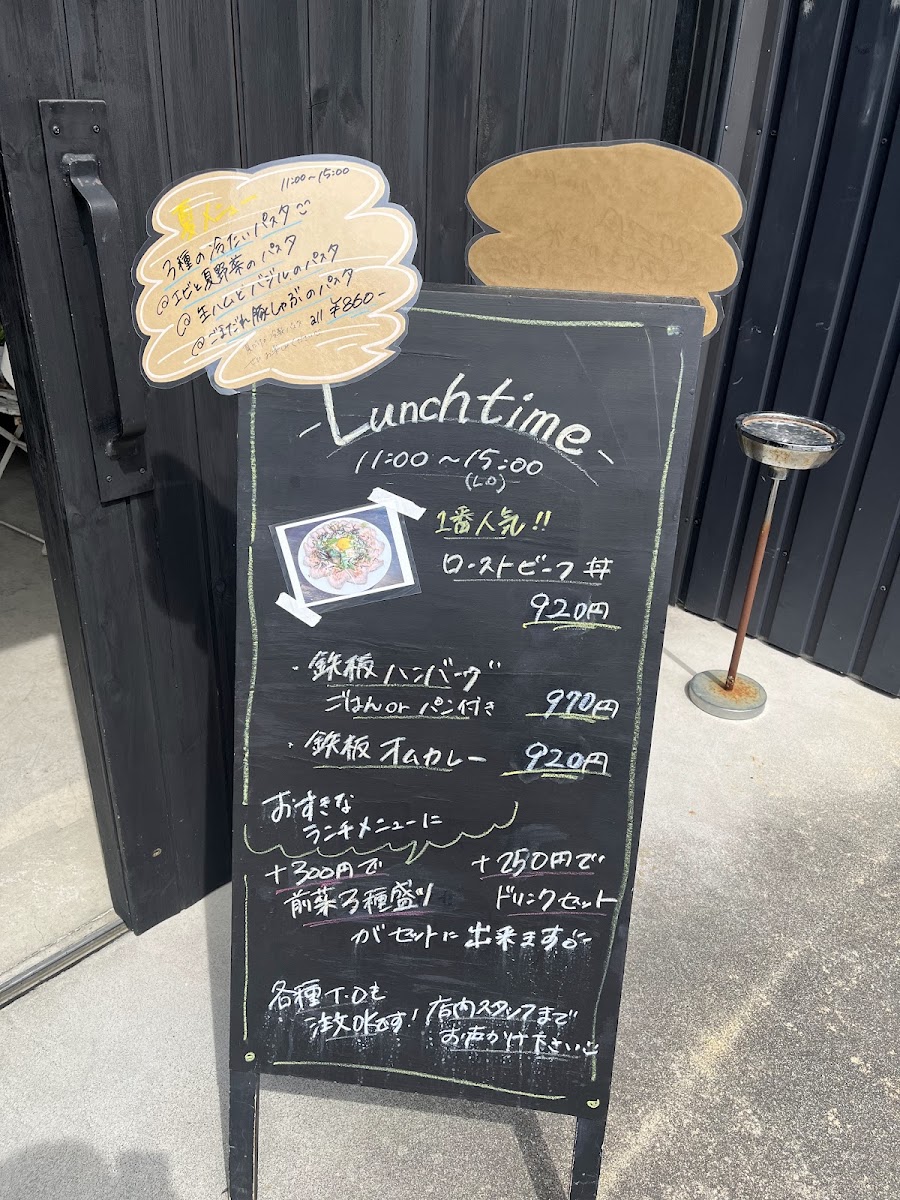 夏メニュー 11:00~15:00
3種の冷たいパスタ
@エビと夏野菜のパスタ
@生ハムとバジルのパスタ
@ごまだれ豚しゃぶのパスタ
all ¥860-
Lunchtime
11:00~15:00
(L.O)
1番人気!!
ローストビーフ丼
920円
・鉄板ハンバーグ
ごはんor パン付き 970円
・鉄板オムカレー 920円
おすきな
ランチメニューに
+300円で +250円で
前菜3種盛り ドリンクセット
がセットに出来ます
各種T.Oも
注文OKです! 店内スタッフまで
お声かけ下さい